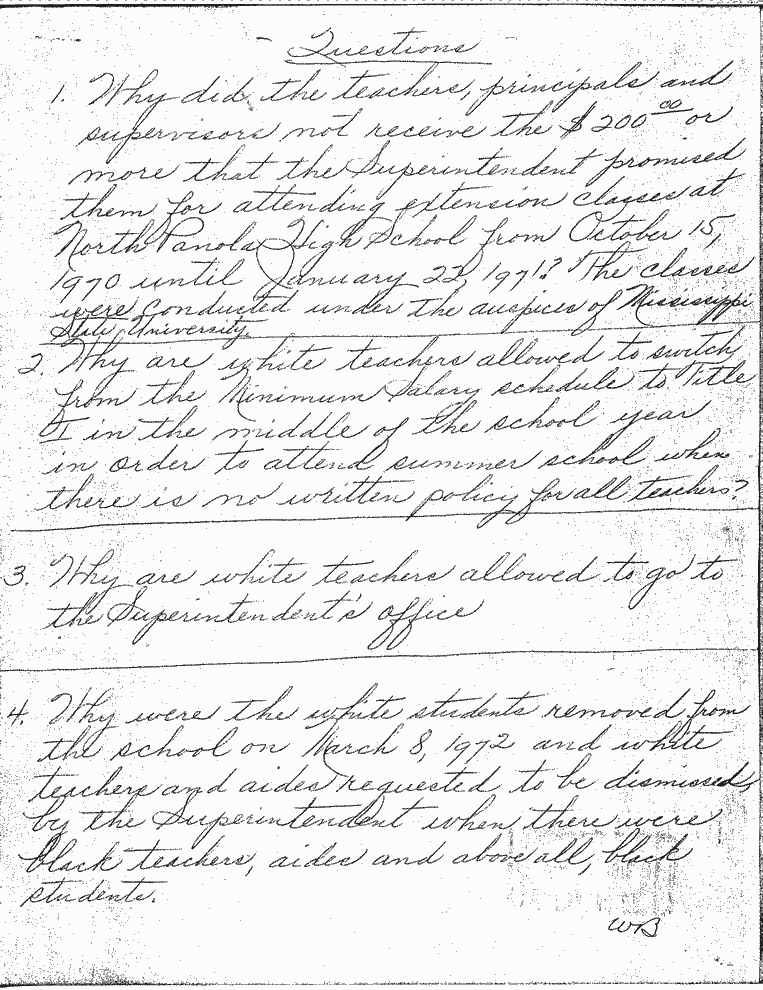 Questions
1. Why did the teachers, principals and
supervisors not receive the $200.00 or
more that the Superintendent promised
them for attending extension classes at
North Panola High School from October 15,
1970 until January 22, 1971? The classes
were conducted under the auspices of Mississippi
State University.
2. Why are white teachers allowed to switch
from the Minimum Salary schedule to Title
I in the middle of the school year
in order to attend summer school when
there is no written policy for all teachers?
3. Why are white teachers allowed to go to
the Superintendent's office
4. Why were the white students removed from
the school on March 8, 1972 and white
teachers and aides requested to be dismissed,
by the Superintendent when there were
black teachers, aides and above all, black
students.
WB